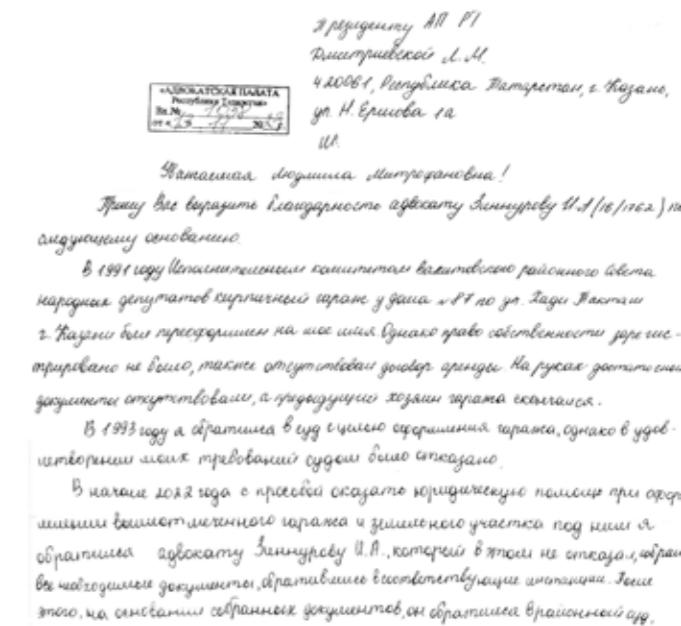 Президенту АП РТ
Дмитриевской Л.М.
420061, Республика Татарстан, г. Казань,
ул. Н. Ершова 1а
«АДВОКАТСКАЯ ПАЛАТА
Республики Татарстан»
Вх. №
от «
Уважаемая Людмила Митрофановна!
Прошу Вас выразить благодарность адвокату Зиннурову И.А (16/1762) по
следующему основанию.
В 1991 году Исполнительным комитетом Вахитовского районного Совета
народных депутатов кирпичный гараж у дома №87 по ул. Хади Такташ
г. Казани был переоформлен на мое имя. Однако право собственности зарегис-
трировано не было, также отсутствовал договор аренды. На руках достаточные
документы отсутствовали, а предыдущий хозяин гаража скончался.
В 1993 году я обратился в суд с целью оформления гаража, однако в удов-
летворении моих требований судом было отказано.
В начале 2022 года с просьбой оказать юридическую помощь при офор
млении вышеотмеченного гаража и земельного участка под ним я
обратился адвокату Зиннурову И.А., который в этом не отказал, собрал
все необходимые документы, обратившись в соответствующие инстанции. После
этого, на основании собранных документов, он обратился в районный суд,